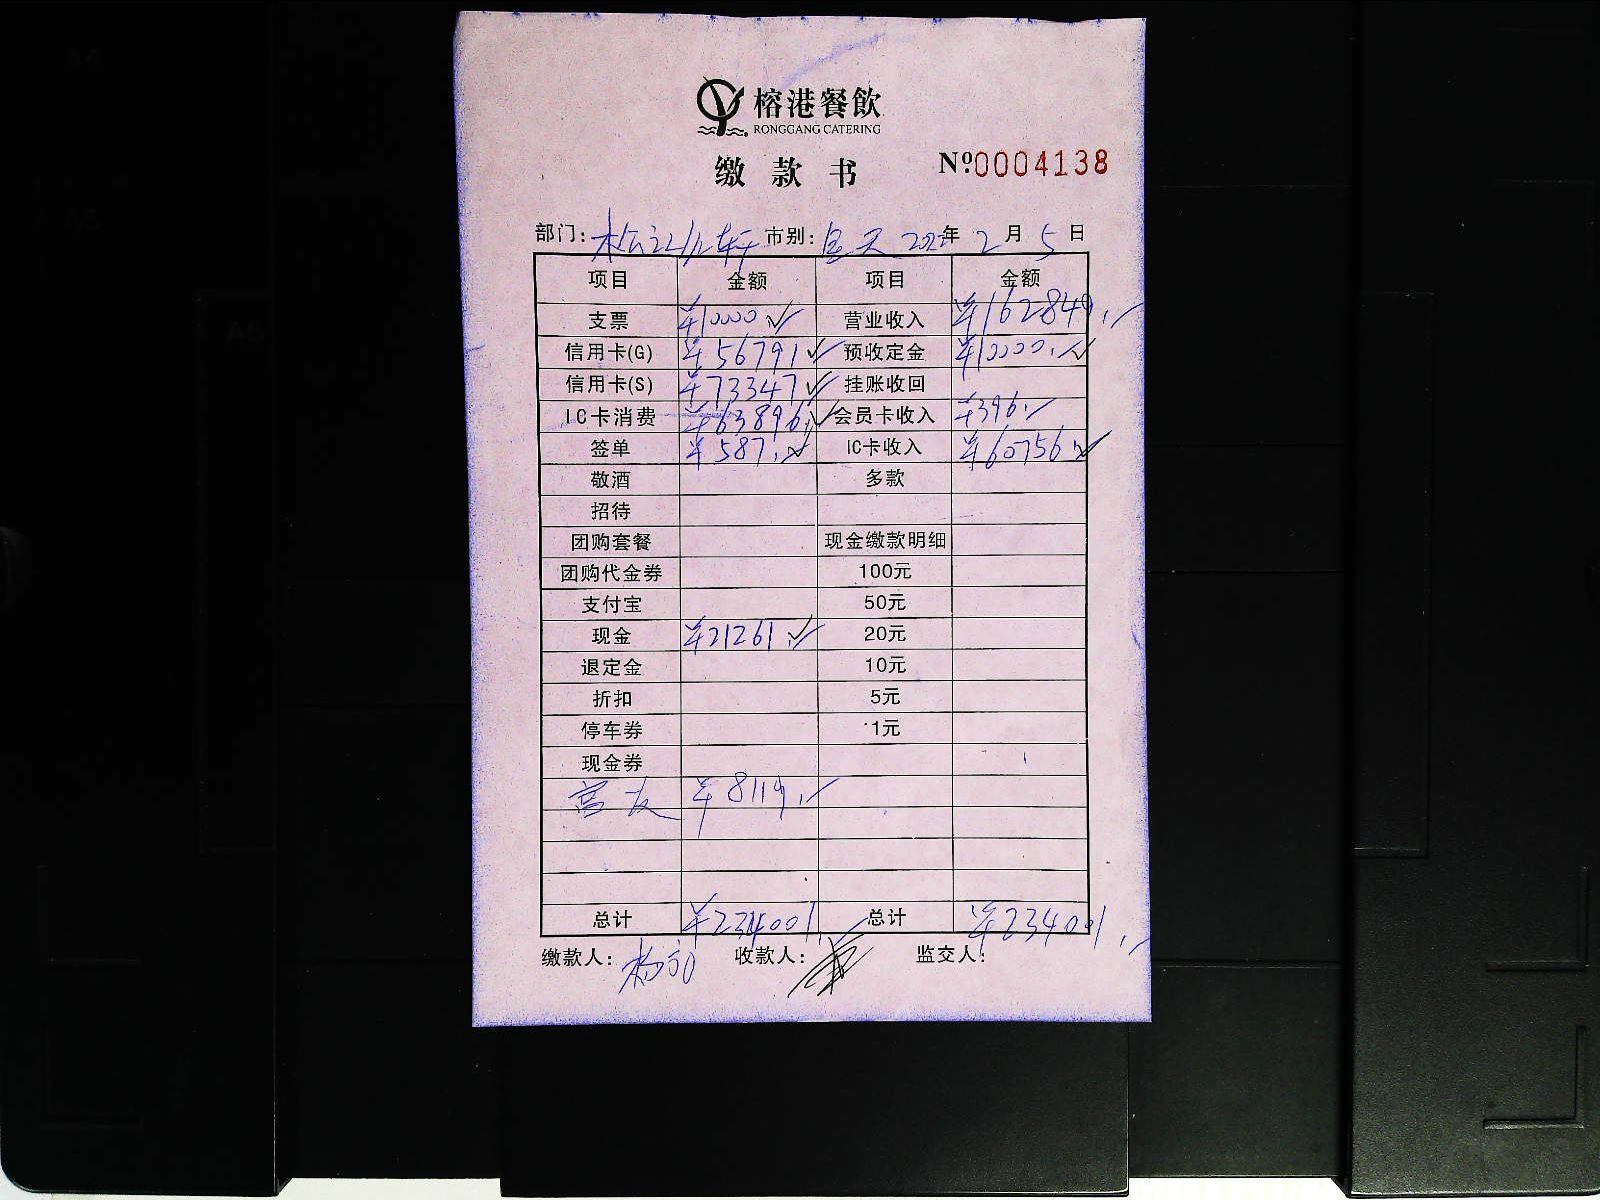 榕港餐飲
RONGGANG CATERING
缴款书 Nº.0004138
部门: 市别:全天 年2月5日
项目 金额 项目 金额
支票 ¥10000.- 营业收入 ¥162849.-
信用卡(G) ¥56791.- 预收定金 ¥10000.-
信用卡(S) ¥73347.- 挂账收回
IC卡消费 ¥63896.- 会员卡收入 ¥396.-
签单 ¥587.- IC卡收入 ¥60756.-
敬酒 多款
招待
团购套餐 现金缴款明细
团购代金券 100元
支付宝 50元
现金 ¥21261.- 20元
退定金 10元
折扣 5元
停车券 1元
现金券
¥8119.-
总计 ¥234001.- 总计 ¥234001.-
缴款人: 收款人: 监交人: